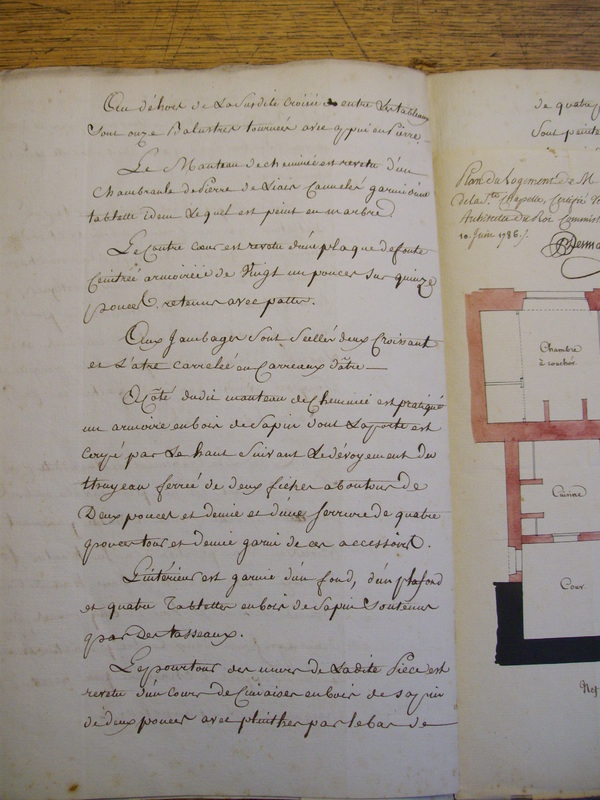 Au déhors de La Susdite Croisée entre Les tableaux
Sont onze Balustres tournées avec appui en Pierre
Le Manteau de cheminée est revetu d'un
Chambranle de Pierre de Liais Cannelé garni d'une
tablette idem Lequel est peint en marbre
Le Contre coeur est revetu d'un plaque de fonte
Ceintrée armoiriée de Vingt un pouces sur quinze
pouces retenus avec pattes.
Aux Jambages Sont Scellés deux Croissant
et L'atre carrelée en Carreaux d'âtre
A Côté dudit manteau de Cheminée est pratiqué
un armoire en bois de Sapin dont La porte est
Coupé par Le haut Suivant Le dévoyement du
thuyeau ferrée de deux fiches a boutons de
Deux pouces et demie et d'une serrure de quatre
pouces tour et demie garni de ces accessoires.
L'intérieur est garnie d'un fond, d'un plafond
et quatre Tablettes en bois de Sapin Soutenus
par Des tasseaux.
Le pourtour des murs de Ladite Piece est
revetu d'un Cours de Cimaises en bois de sapin
de deux pouces avec plinthes par le bas de
de quatre
Sont peinte
Plan du Logement de M
de la Ste Chapelle, Certifié
Architecte du Roi Commis
10. Juin 1786.
Chambre
à coucher.
Cuisine
Cour